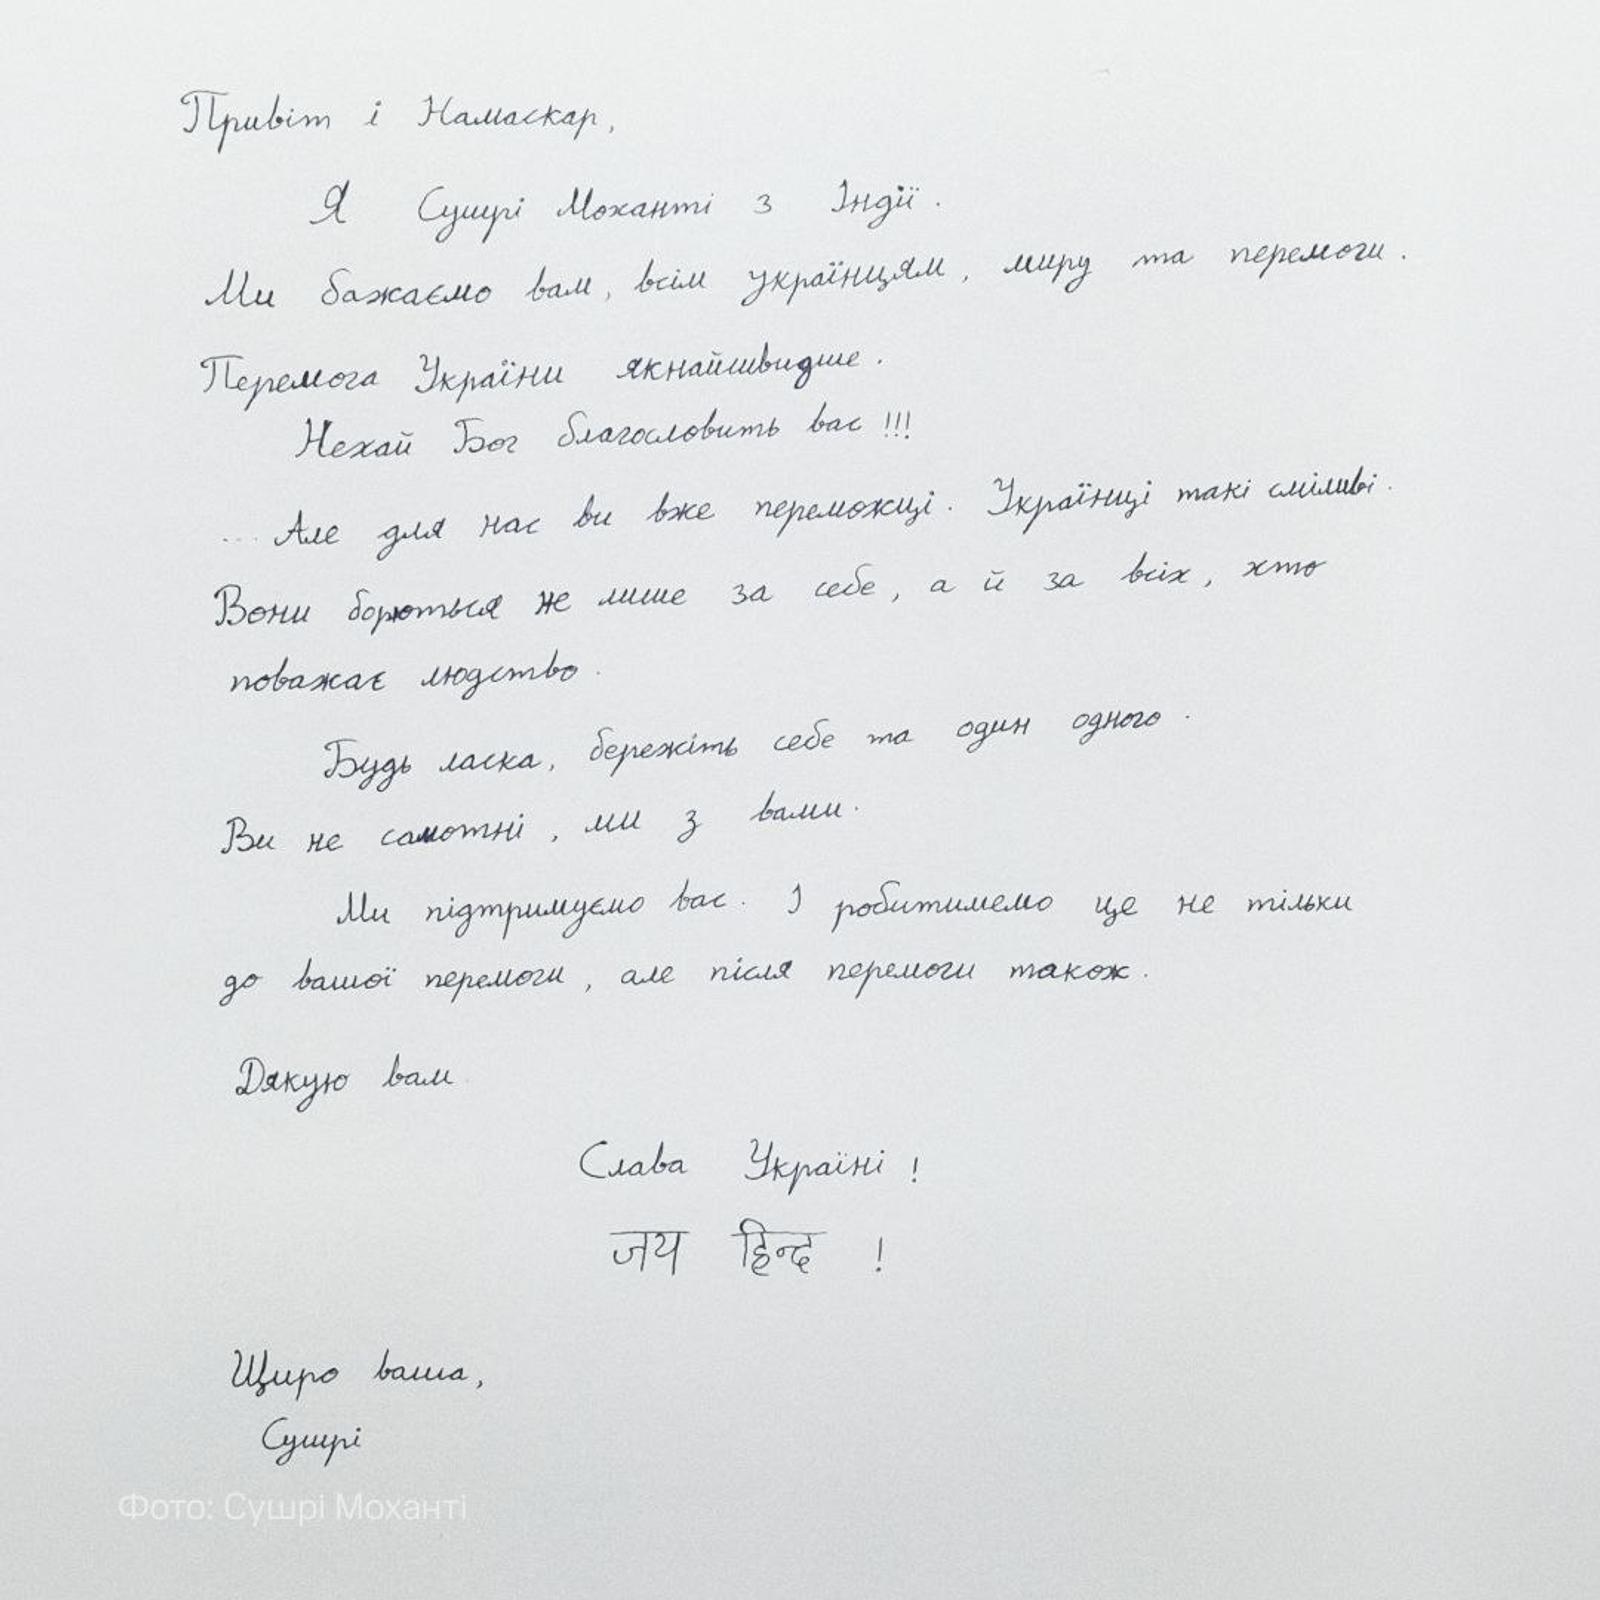 Привіт і Намаскар,
Я Сушрі Моханті з Індії.
Ми бажаємо вам, всім українцям, миру та перемоги.
Перемога України якнайшвидше.
Нехай Бог благословить вас !!!
... Але для нас ви вже переможці. Українці такі сміливі.
Вони борються не лише за себе, а й за всіх, хто
поважає людство.
Будь ласка, бережіть себе та один одного.
Ви не самотні, ми з вами.
Ми підтримуємо вас. І робитимемо це не тільки
до вашої перемоги, але після перемоги також.
Дякую вам.
Слава Україні !
जय हिन्द !
Щиро ваша,
Сушрі
Фото: Сушрі Моханті